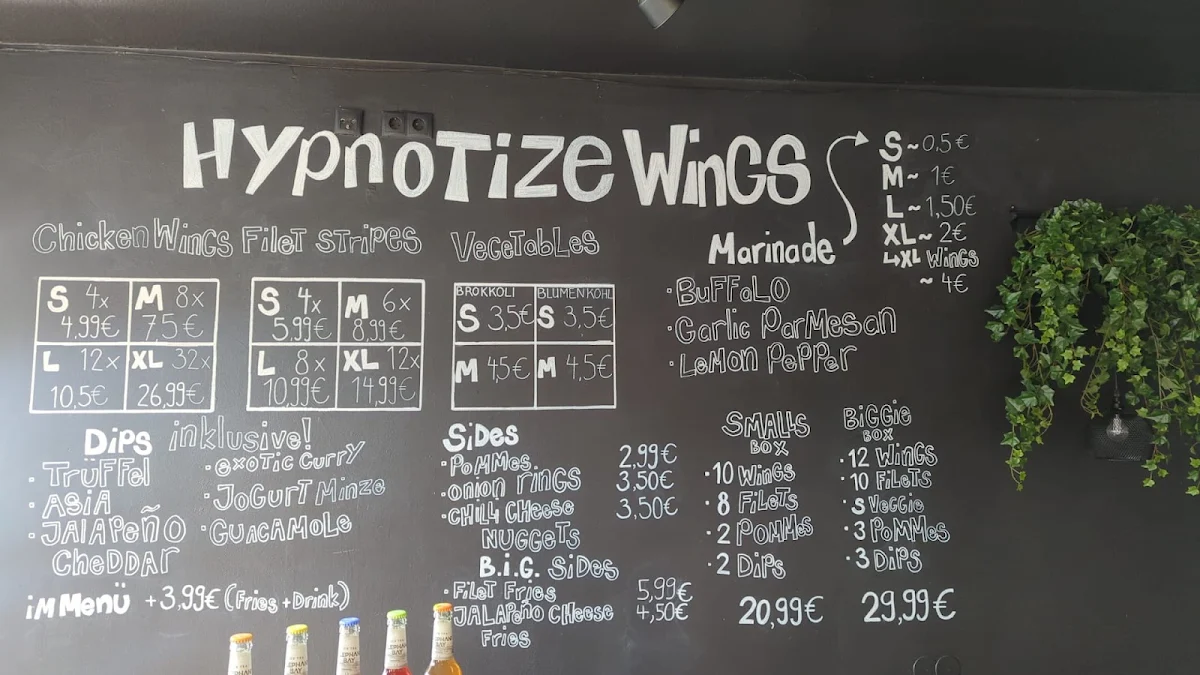 HypnoTize Wings
S ~ 0,5€
M ~ 1€
L ~ 1,50€
XL ~ 2€
↳XL Wings
~ 4€
Marinade
· Buffalo
· Garlic Parmesan
· Lemon Pepper
Chicken Wings
S 4x M 8x
4,99€ 7,5€
L 12x XL 32x
10,5€ 26,99€
Filet Stripes
S 4x M 6x
5,99€ 8,99€
L 8x XL 12x
10,99€ 14,99€
Vegetables
BROKKOLI BLUMENKOHL
S 3,5€ S 3,5€
M 4,5€ M 4,5€
Dips inklusive!
· Trüffel
· Asia
· Jalapeño
Cheddar
· exotic Curry
· Jogurt Minze
· Guacamole
im Menü +3,99€ (Fries + Drink)
Sides
· Pommes 2,99€
· Onion Rings 3,50€
· Chili Cheese 3,50€
Nuggets
B.i.G. Sides
· Filet Fries 5,99€
· Jalapeño Cheese 4,50€
Fries
Smalls
Box
· 10 Wings
· 8 Filets
· 2 Pommes
· 2 Dips
20,99€
Biggie
Box
· 12 Wings
· 10 Filets
· S Veggie
· 3 Pommes
· 3 Dips
29,99€